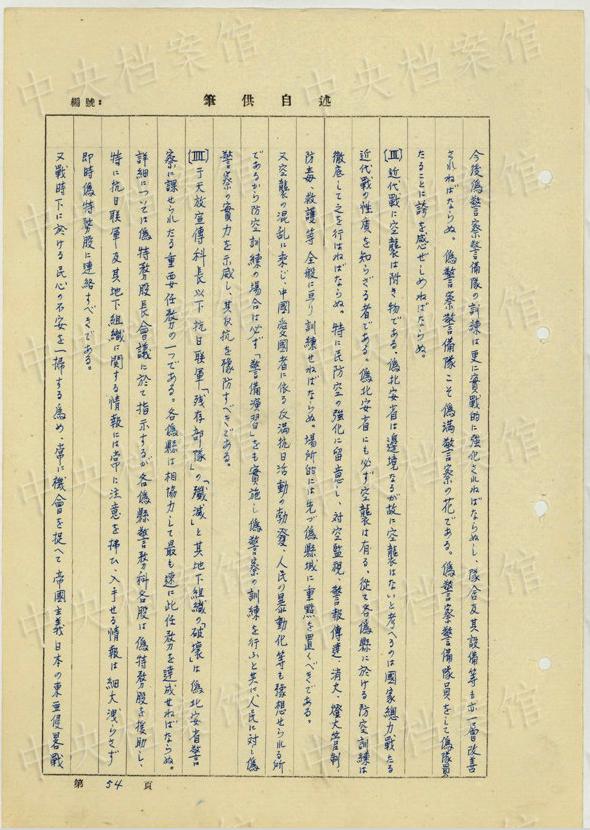 編號：
述自供筆
今後偽警察警備隊の訓練は更に實戰的に強化されねばならぬし、隊舍及其設備等も亦一層改善
されねばならぬ。偽警察警備隊こそ偽満警察の花である。偽警察警備隊員をして偽隊員
たることに誇を感ぜしめねばならぬ。
(Ⅱ)近代戰に空襲は附き物である、偽北安省は邊境なるが故に空襲はないと考へるのは國家總力戰たる
近代戰の性質を知らざる者である。偽北安省にも必ず空襲は有る、從て各偽縣に於ける防空訓練は
徹底して之を行はねばならぬ。特に民防空の強化に留意し、対空監視、警報傳達、消火、燈火管制、
防毒、救護等全般に亘り訓練せねばならぬ。場所的には先づ偽縣城に重點を置くべきである。
又空襲の混乱に乘じ、中國愛國者に依る反満抗日活動の勃發、人民の暴動化等も豫想せられる所
であるから防空訓練の場合は必ず「警備演習」をも實施し偽警察の訓練を行ふと共に人民に対し偽
警察の實力を示威し、其反抗を豫防すべきである。
(Ⅲ)于天放宣傳科長以下抗日联軍「残存部隊」の「殲滅」と其地下組織の「破壊」は偽北安省警
察に課せられたる重要任務の一つである。各偽縣は相協力して最も速に此任務を達成せねばならぬ。
詳細については偽特務股長會議に於て指示するが各偽縣警務科各股は偽特務股を援助し、
特に抗日联軍及其地下組織に関する情報には常に注意を拂ひ、入手せる情報は細大洩らさず
即時偽特務股に連絡すべきである。
又戰時下に於ける民心の不安を一掃する為め、常に機會を捉へて帝國主義日本の東亜侵畧戰
第 54 頁
中央档案馆